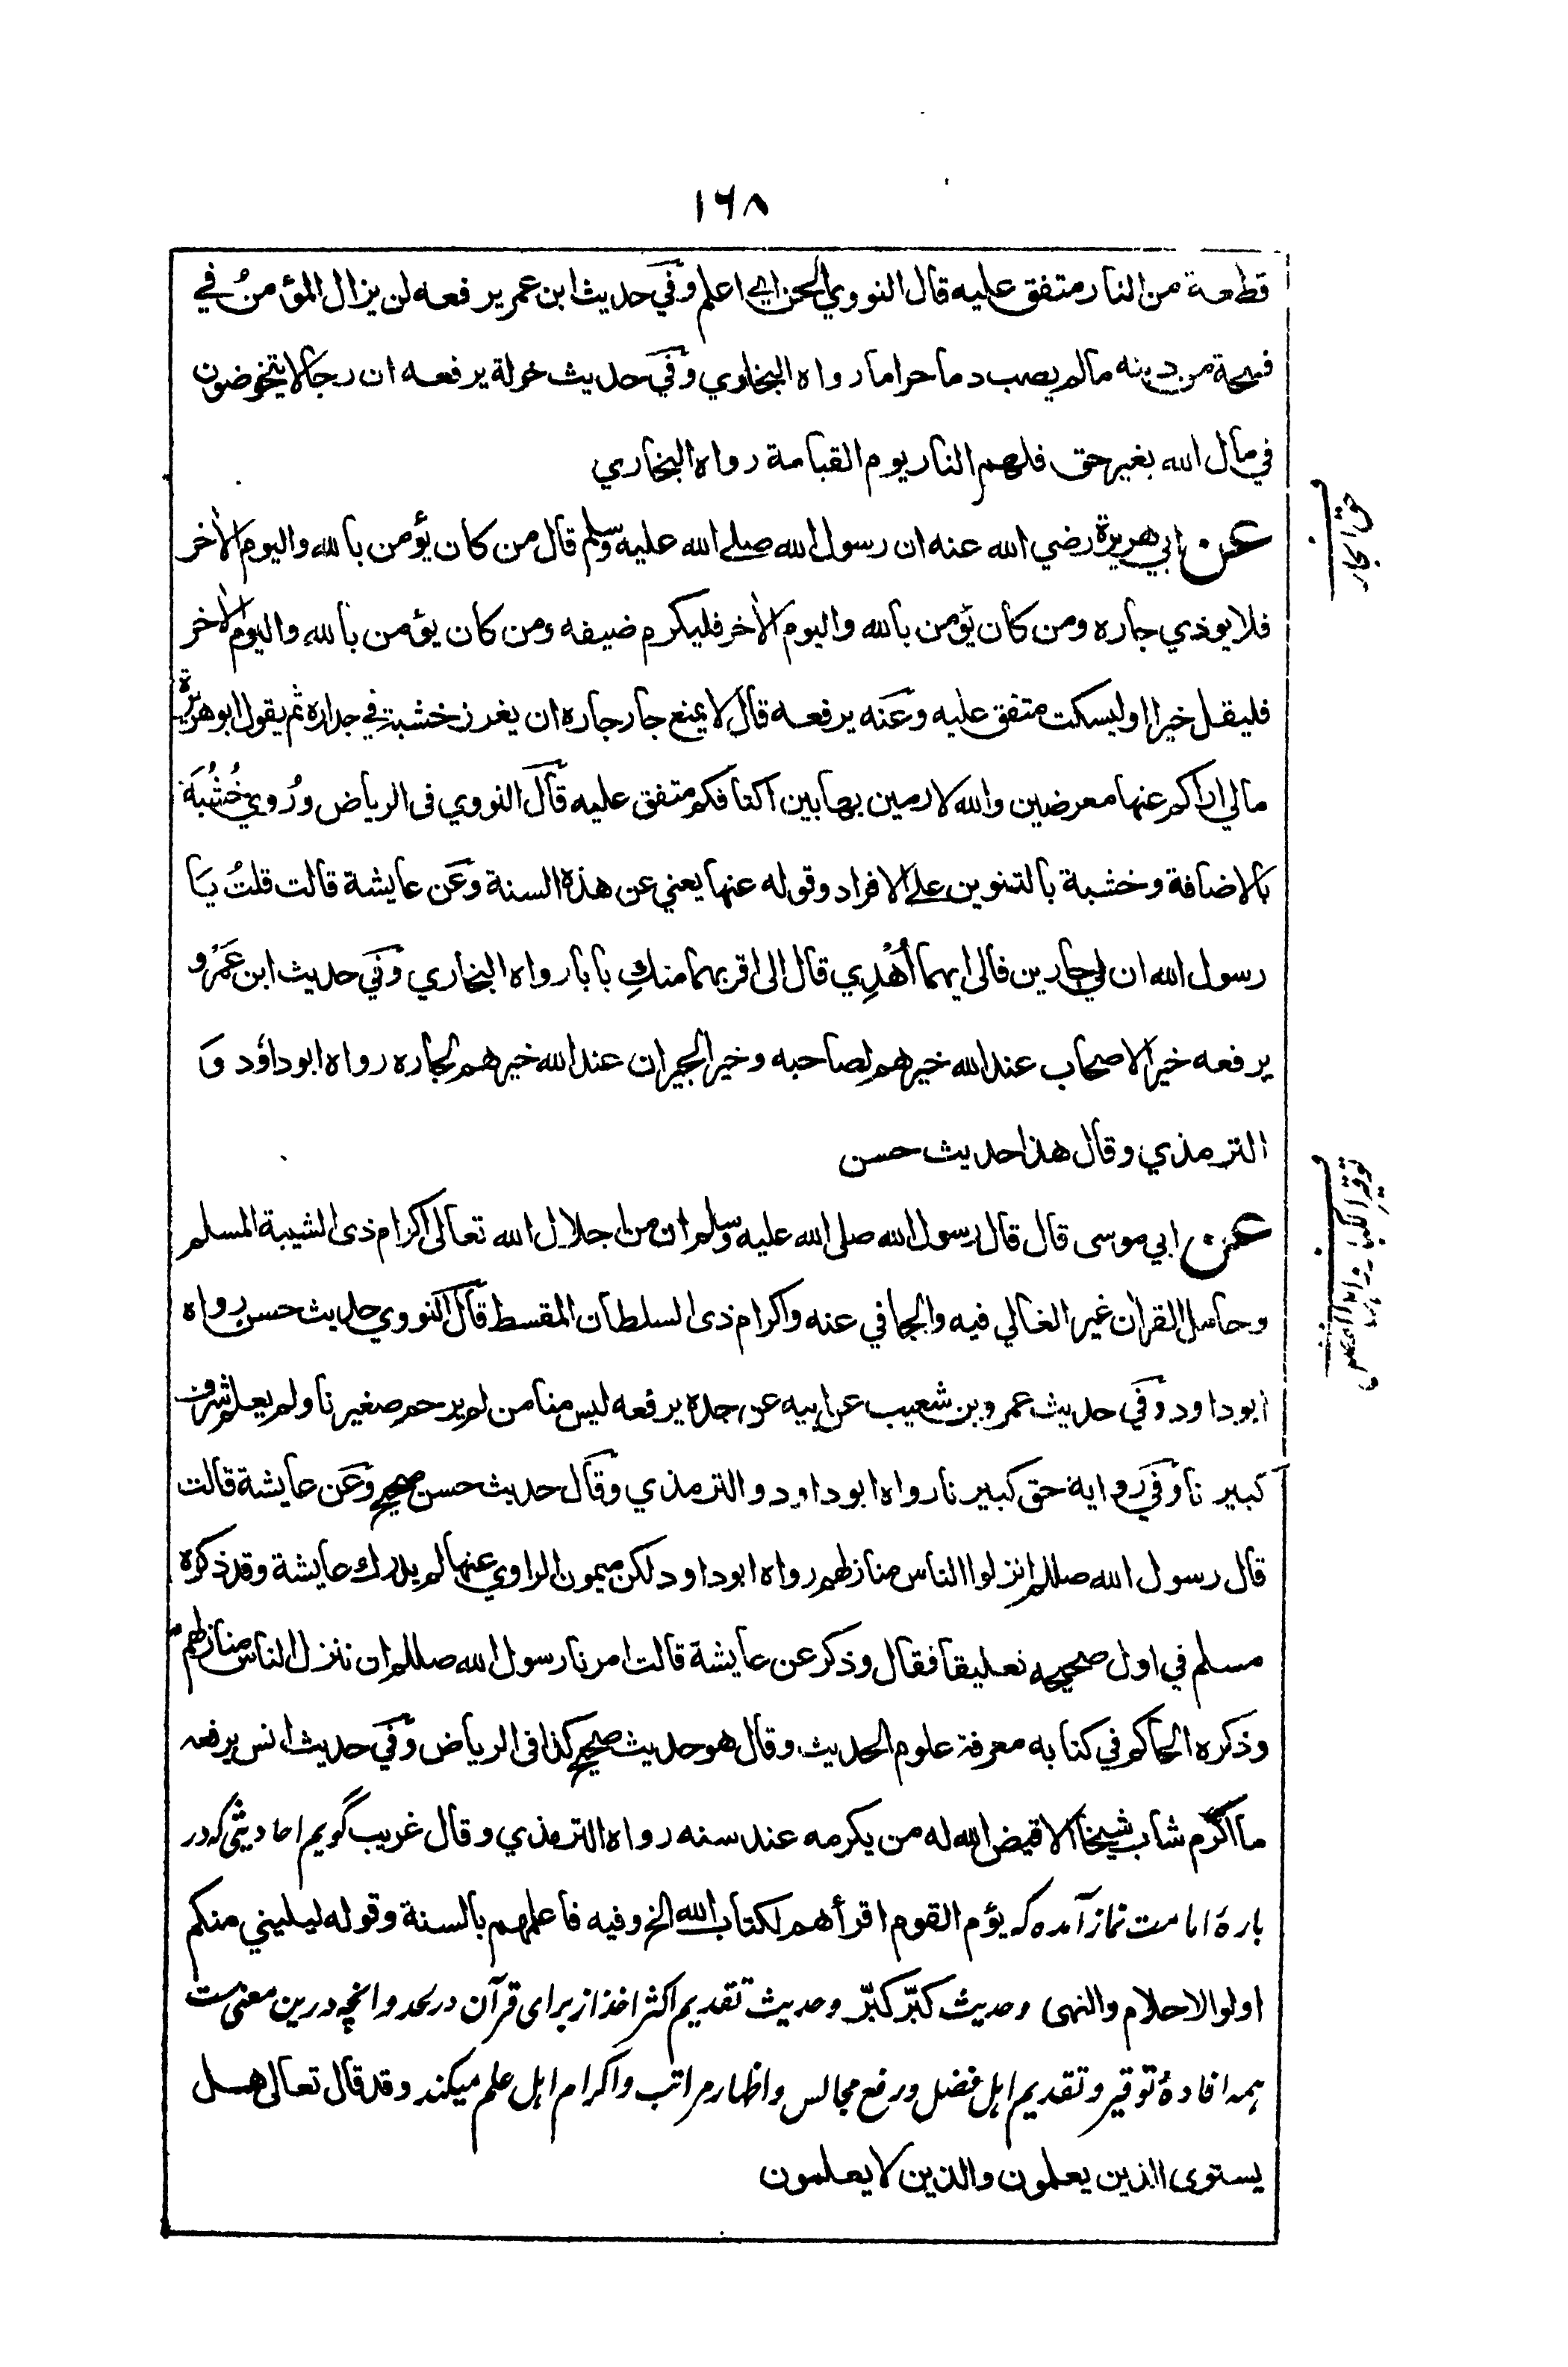 ۱۶۸
قطعة من النار متفق عليه قال النووي الحن اي اعلم وفي حديث ابن عمر يرفعه لن يزال المؤمنُ في
فسحة من دينه مالم يصب دما حراما رواه البخاوي وفي حديث خولة يرفعه ان رجالا يتخوضون
في مال الله بغير حق فلهم النار يوم القيامة رواه البخاري
عن ابي هريرة رضي الله عنه ان رسول الله صلى الله عليه وسلم قال من كان يؤمن بالله واليوم الأخر
فلا يوذي جاره ومن كان يؤمن بالله واليوم الأخر فليكرم ضيفه ومن كان يؤمن بالله واليوم الأخر
فليقل خيرا او ليسكت متفق عليه وعنه يرفعه قال لا يمنع جار جاره ان يغرز خشبة في جداره ثم يقول ابو هريرة
مالي اراكم عنها معرضين والله لارمين بها بين اكتافكم متفق عليه قال النووي فى الرياض ورُوي خُشُبَه
بالاضافة وخشبة بالتنوين على الافراد وقوله عنها يعني عن هذه السنة وعن عايشة قالت قلتُ يا
رسول الله ان لي جارين فالى ايهما أُهْدِي قال الى اقربهما منكِ بابا رواه البخاري وفي حديث ابن عَمْرو
يرفعه خير الاصحاب عند الله خيرهم لصاحبه وخير الجيران عند الله خيرهم لجاره رواه ابو داؤد و
الترمذي وقال هذا حديث حسن
عن ابي موسى قال قال رسول الله صلى الله عليه وسلم ان من اجلال الله تعالى اكرام ذى الشيبة المسلم
وحامل القرأن غير الغالي فيه والجافي عنه واكرام ذى السلطان المقسط قال النووي حديث حسن رواه
ابو داود وفي حديث عمرو بن شعيب عن ابيه عن جده يرفعه ليس منا من لم يرحم صغيرنا ولم يعلم شرف
كبيرنا وفي رواية حق كبيرنا رواه ابو داود والترمذي وقال حديث حسن صحيح وعن عايشة قالت
قال رسول الله صللم انزلوا الناس منازلهم رواه ابو داود لكن ميمون الراوي عنها لم يدرك عايشة وقد ذكره
مسلم في اول صحيحه تعليقا فقال وذكر عن عايشة قالت امرنا رسول الله صللم ان ننزل الناس منازلهم
وذكره الحاكم في كتابه معرفة علوم الحديث وقال هو حديث صحيح كذا فى الرياض وفي حديث انس يرفعه
ما اكرم شاب شيخا الا قيض الله له من يكرمه عند سنه رواه الترمذي وقال غريب گويم احاديثى كه در
بارهٔ امامت نماز آمده كه يؤم القوم اقرأهم لكتاب الله الخ وفيه فاعلمهم بالسنة وقوله ليليني منكم
اولوا الاحلام والنهى وحديث كبّر كبّر وحديث تقديم اكثر اخذ از براى قرآن در لحد وانچه درين معنى ست
همه افادهٔ توقير وتقديم اہل فضل ورفع مجالس واظهار مراتب واكرام اہل علم ميكند وقد قال تعالى هل
يستوى الذين يعلمون والذين لا يعلمون